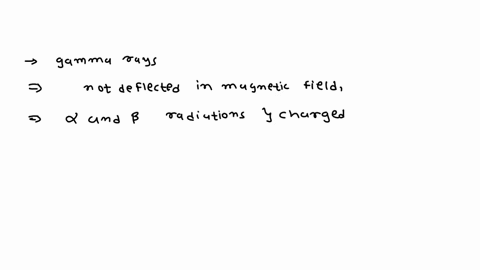 → gamma rays
⇒ not deflected in magnetic field,
⇒ α and β radiations } charged